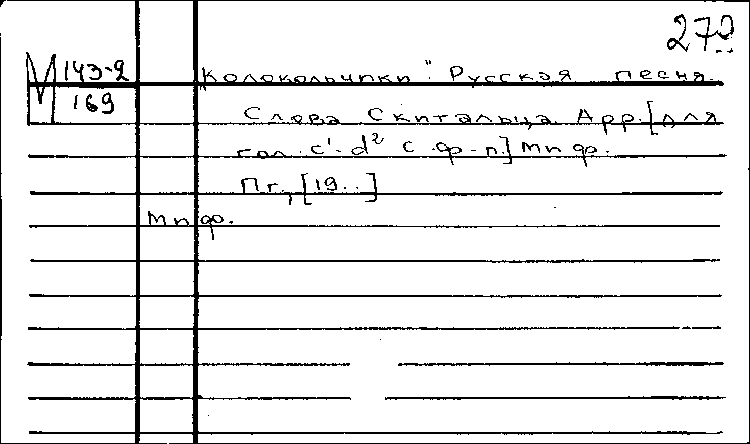 272
М 143-2
169
„Колокольчики". Русская песня.
Слова Скитальца. Арр. [для
гол. c¹-d² с ф-п.] Мп фр.
Пг., [19..]
Мп фр.